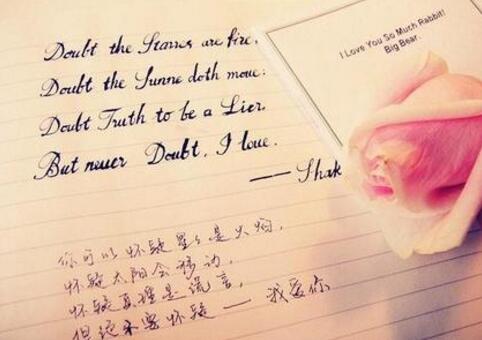 Doubt the Starres are fire,
Doubt the Sunne doth moue:
Doubt Truth to be a Lier.
But neuer Doubt, I loue.
—— Shak
I Love You So Much Rabbit!
Big Bear.
你可以怀疑星星是火焰，
怀疑太阳会移动，
怀疑真理是谎言，
但绝不要怀疑 — 我爱你